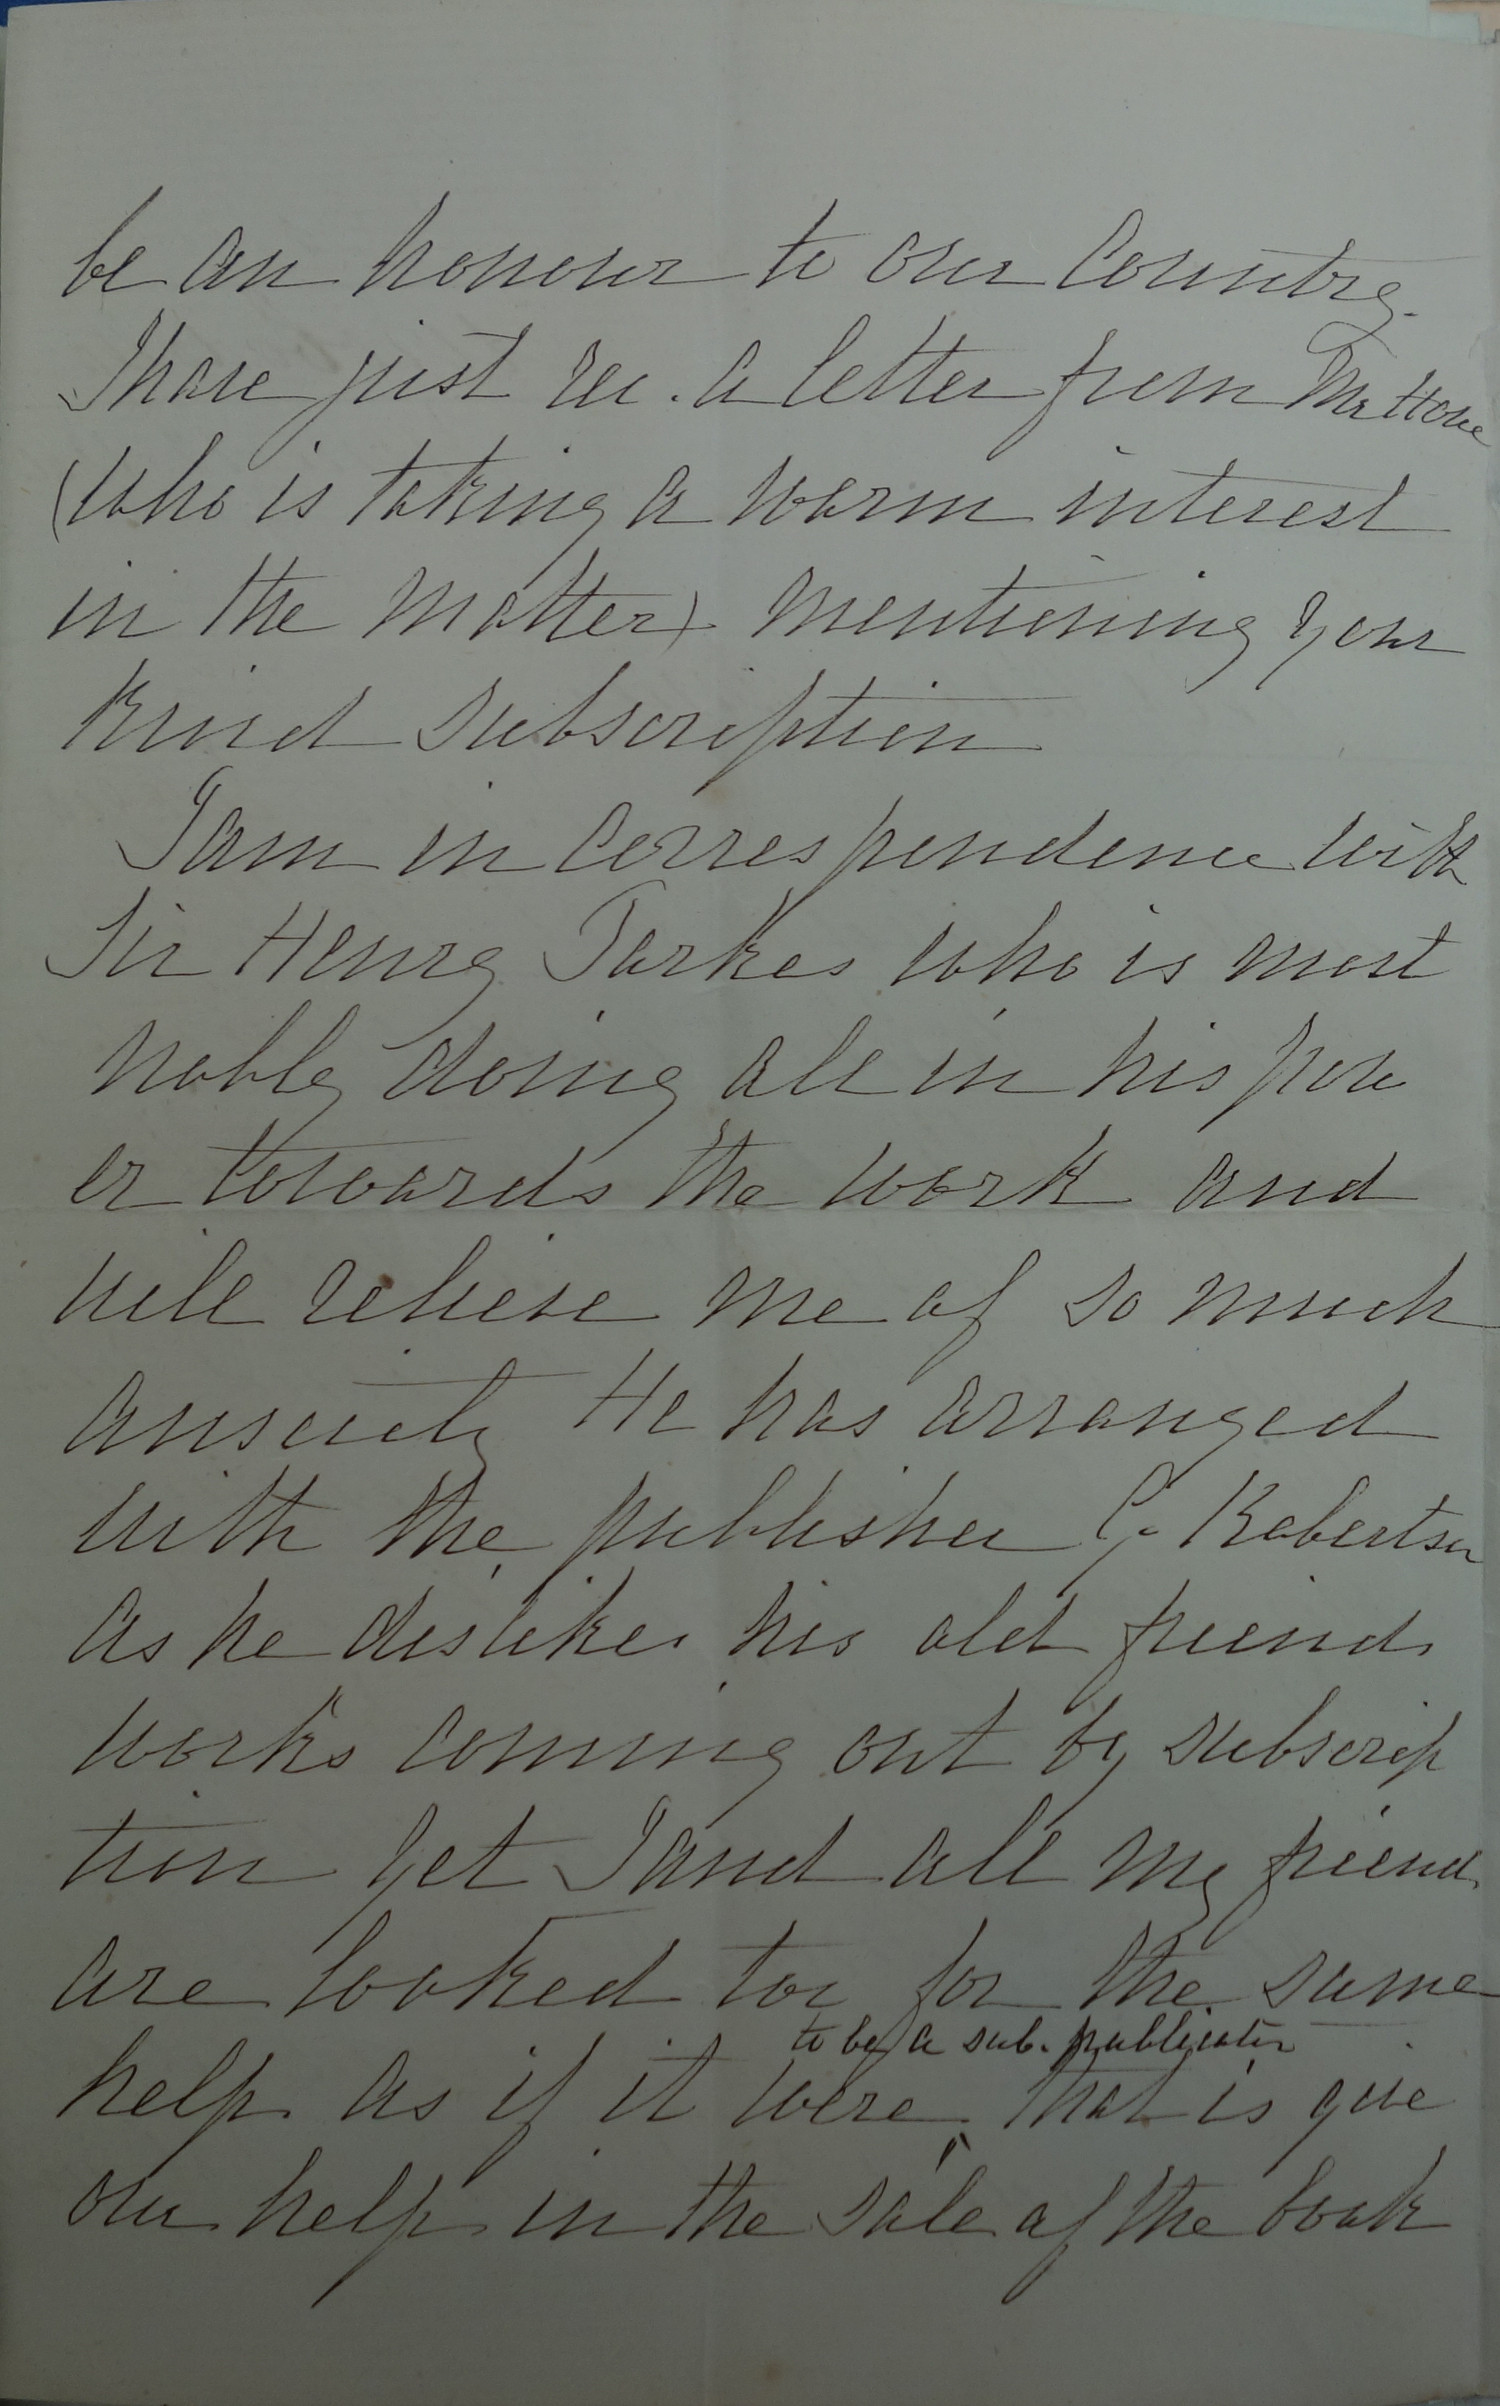 be an honour to our Country.
I have just rec. a letter from Mr
(who is taking a warm interest
in the matter) mentioning your
kind subscription
I am in correspondence with
Sir Henry Parkes who is most
nobly doing all in his pow
er towards the work and
will relieve me of so much
anxiety He has arranged
with the publisher G. Robertson
as he dislikes his old friends
works coming out by subscrip
tion yet I and all my friends
are looked too for the same
to be a sub. publication
help as if it were that is give
our help in the sale of the book